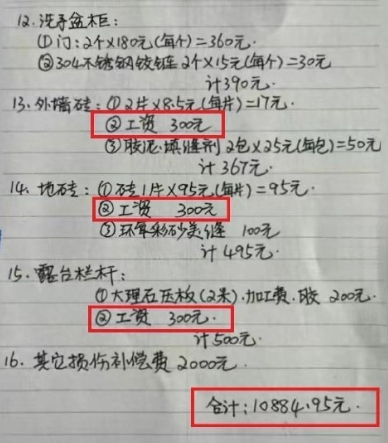 12. 洗手盆柜:
① 门:2个×180元(每个)=360元.
② 304不锈钢铰链 2个×15元(每个)=30元
计390元.
13. 外墙砖:① 2片×8.5元(每片)=17元.
② 工资 300元
③ 胶泥.填缝剂 2包×25元(每包)=50元
计367元.
14. 地砖:① 砖1片×95元(每片)=95元.
② 工资 300元
③ 环氧彩砂美缝 100元
计495元.
15. 露台栏杆:
① 大理石压板(2米).加工费.胶 200元.
② 工资 300元.
计500元.
16. 其它损伤补偿费2000元.
合计:10884.95元.